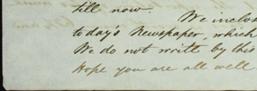 till now. We inclose
to day's Newspaper, which
We do not write by this
Hope you are all well